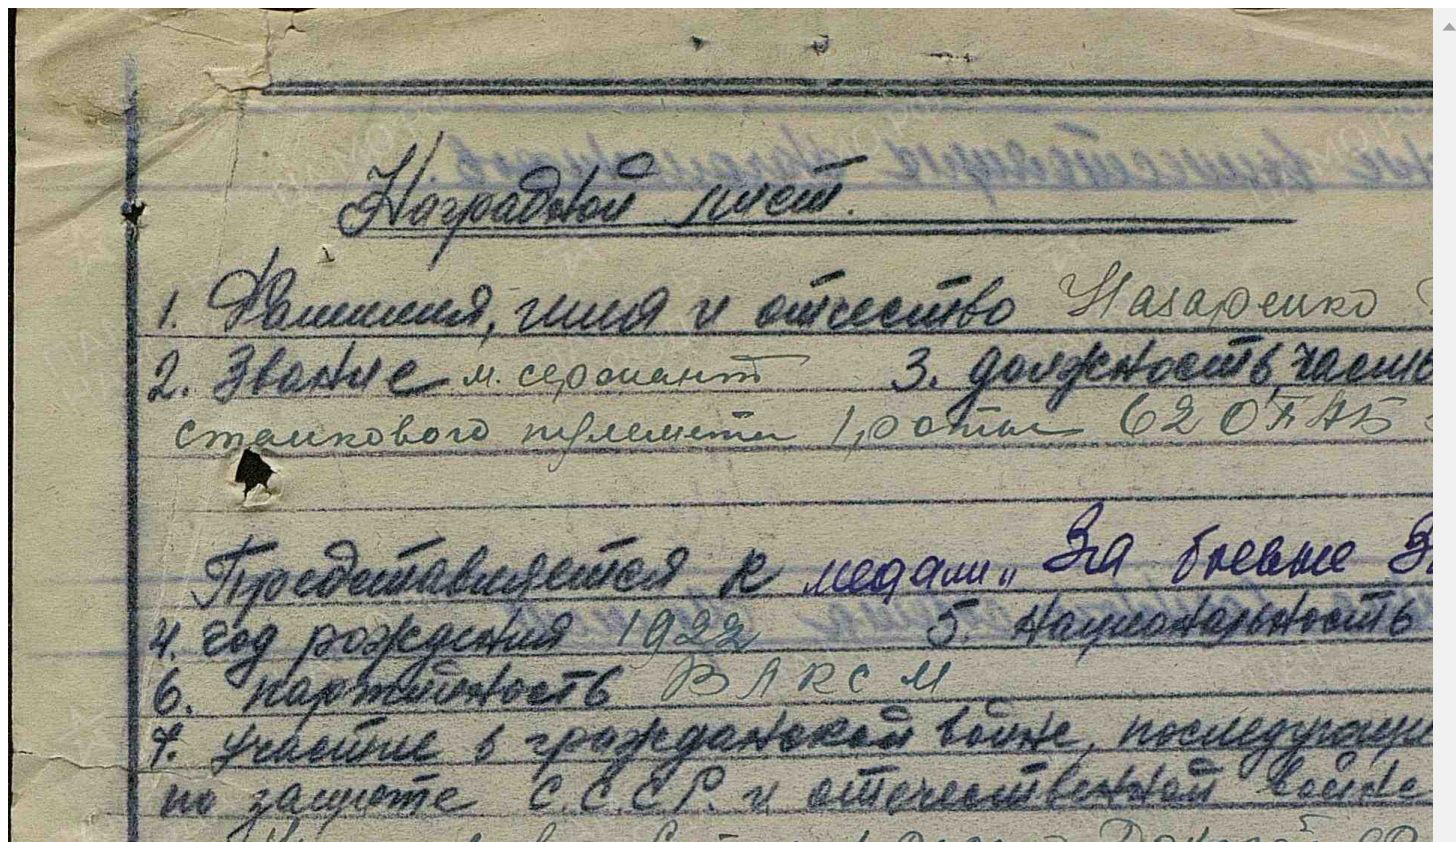 Наградной лист.
1. Фамилия, имя и отчество Назаренко
2. Звание м. сержант 3. должность, часть
станкового пулемета 1 роты 62 ОПАБ
Представляется к медали „За боевые
4. год рождения 1922 5. национальность
6. партийность ВЛКСМ
7. участие в гражданской войне, последующи
по защите С.С.С.Р. и отечественной войне